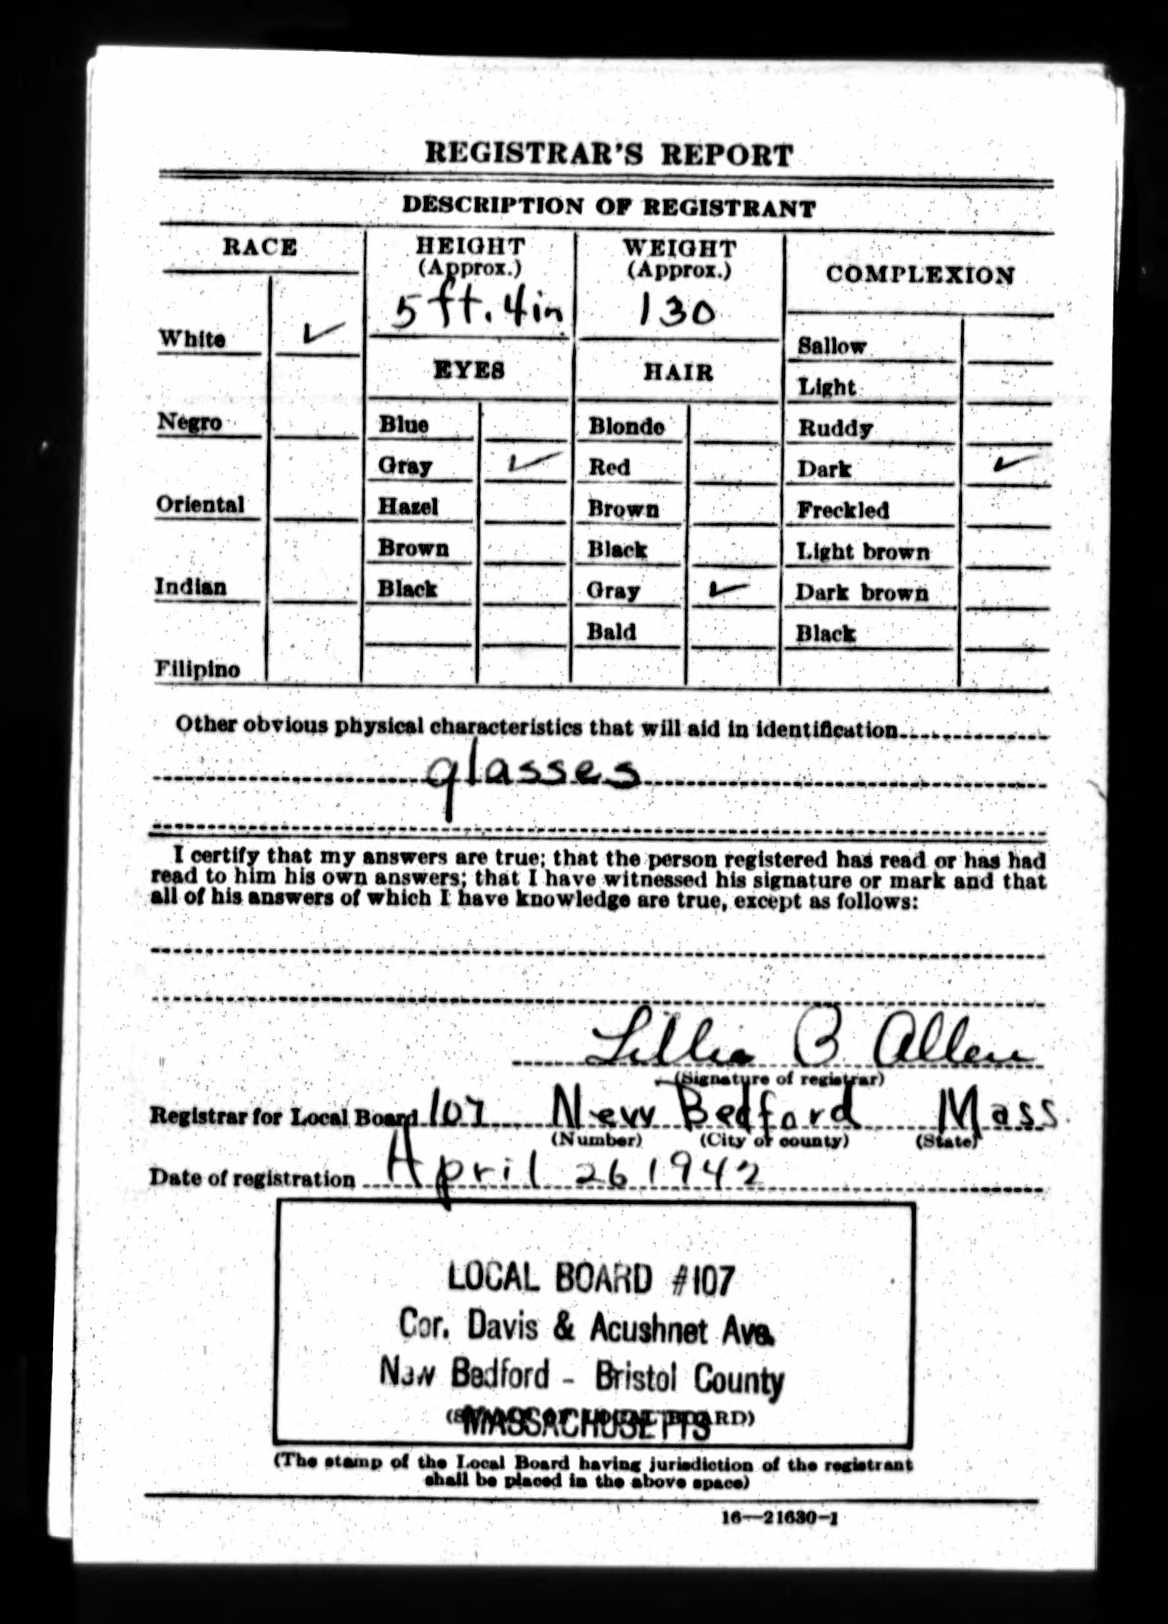 REGISTRAR'S REPORT
DESCRIPTION OF REGISTRANT
RACE
HEIGHT
(Approx.)
5 ft. 4 in
WEIGHT
(Approx.)
130
COMPLEXION
White ✓
Negro
Oriental
Indian
Filipino
EYES
Blue
Gray ✓
Hazel
Brown
Black
HAIR
Blonde
Red
Brown
Black
Gray ✓
Bald
Sallow
Light
Ruddy
Dark ✓
Freckled
Light brown
Dark brown
Black
Other obvious physical characteristics that will aid in identification
glasses
I certify that my answers are true; that the person registered has read or has had
read to him his own answers; that I have witnessed his signature or mark and that
all of his answers of which I have knowledge are true, except as follows:
Lillia B Allen
(Signature of registrar)
Registrar for Local Board 107 New Bedford Mass.
(Number) (City or county) (State)
Date of registration April 26 1942
LOCAL BOARD #107
Cor. Davis & Acushnet Ave.
New Bedford - Bristol County
MASSACHUSETTS
(The stamp of the Local Board having jurisdiction of the registrant
shall be placed in the above space)
16—21630-1